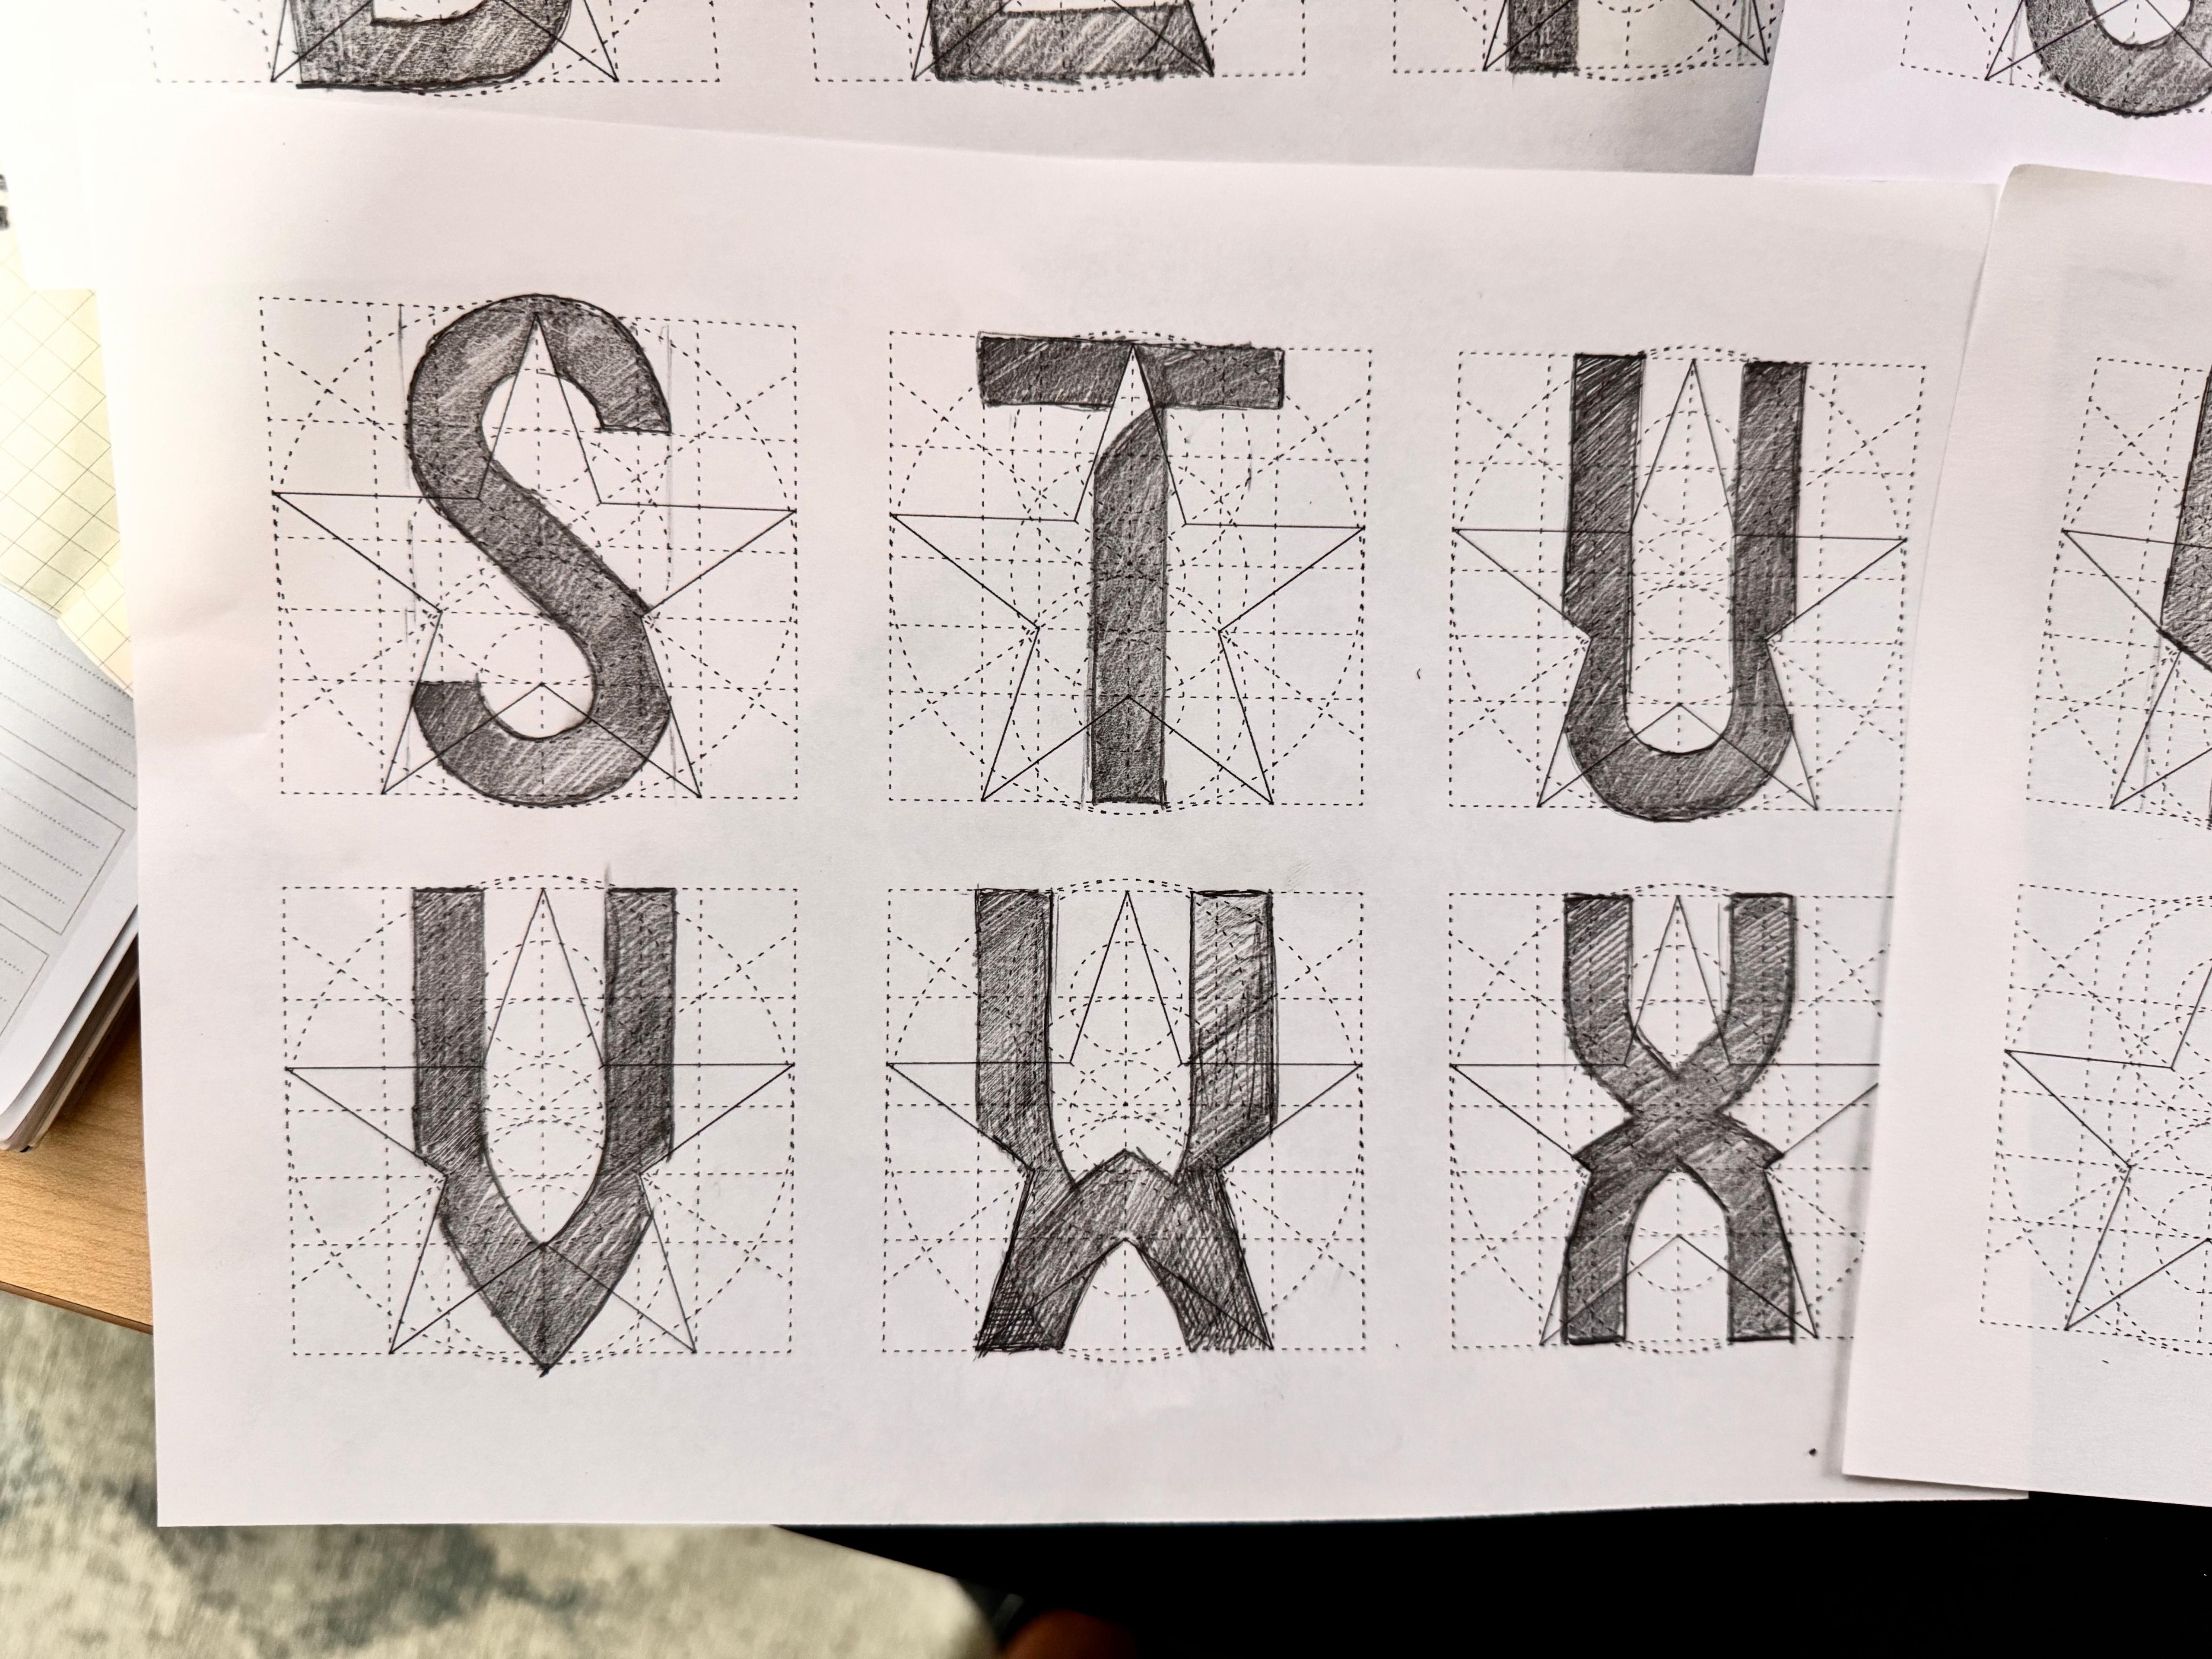 S T U
V W X